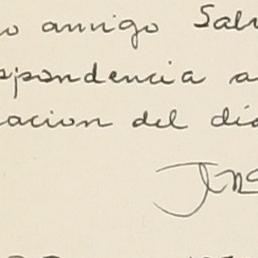 o amigo Salv
spondencia a
acion del dia